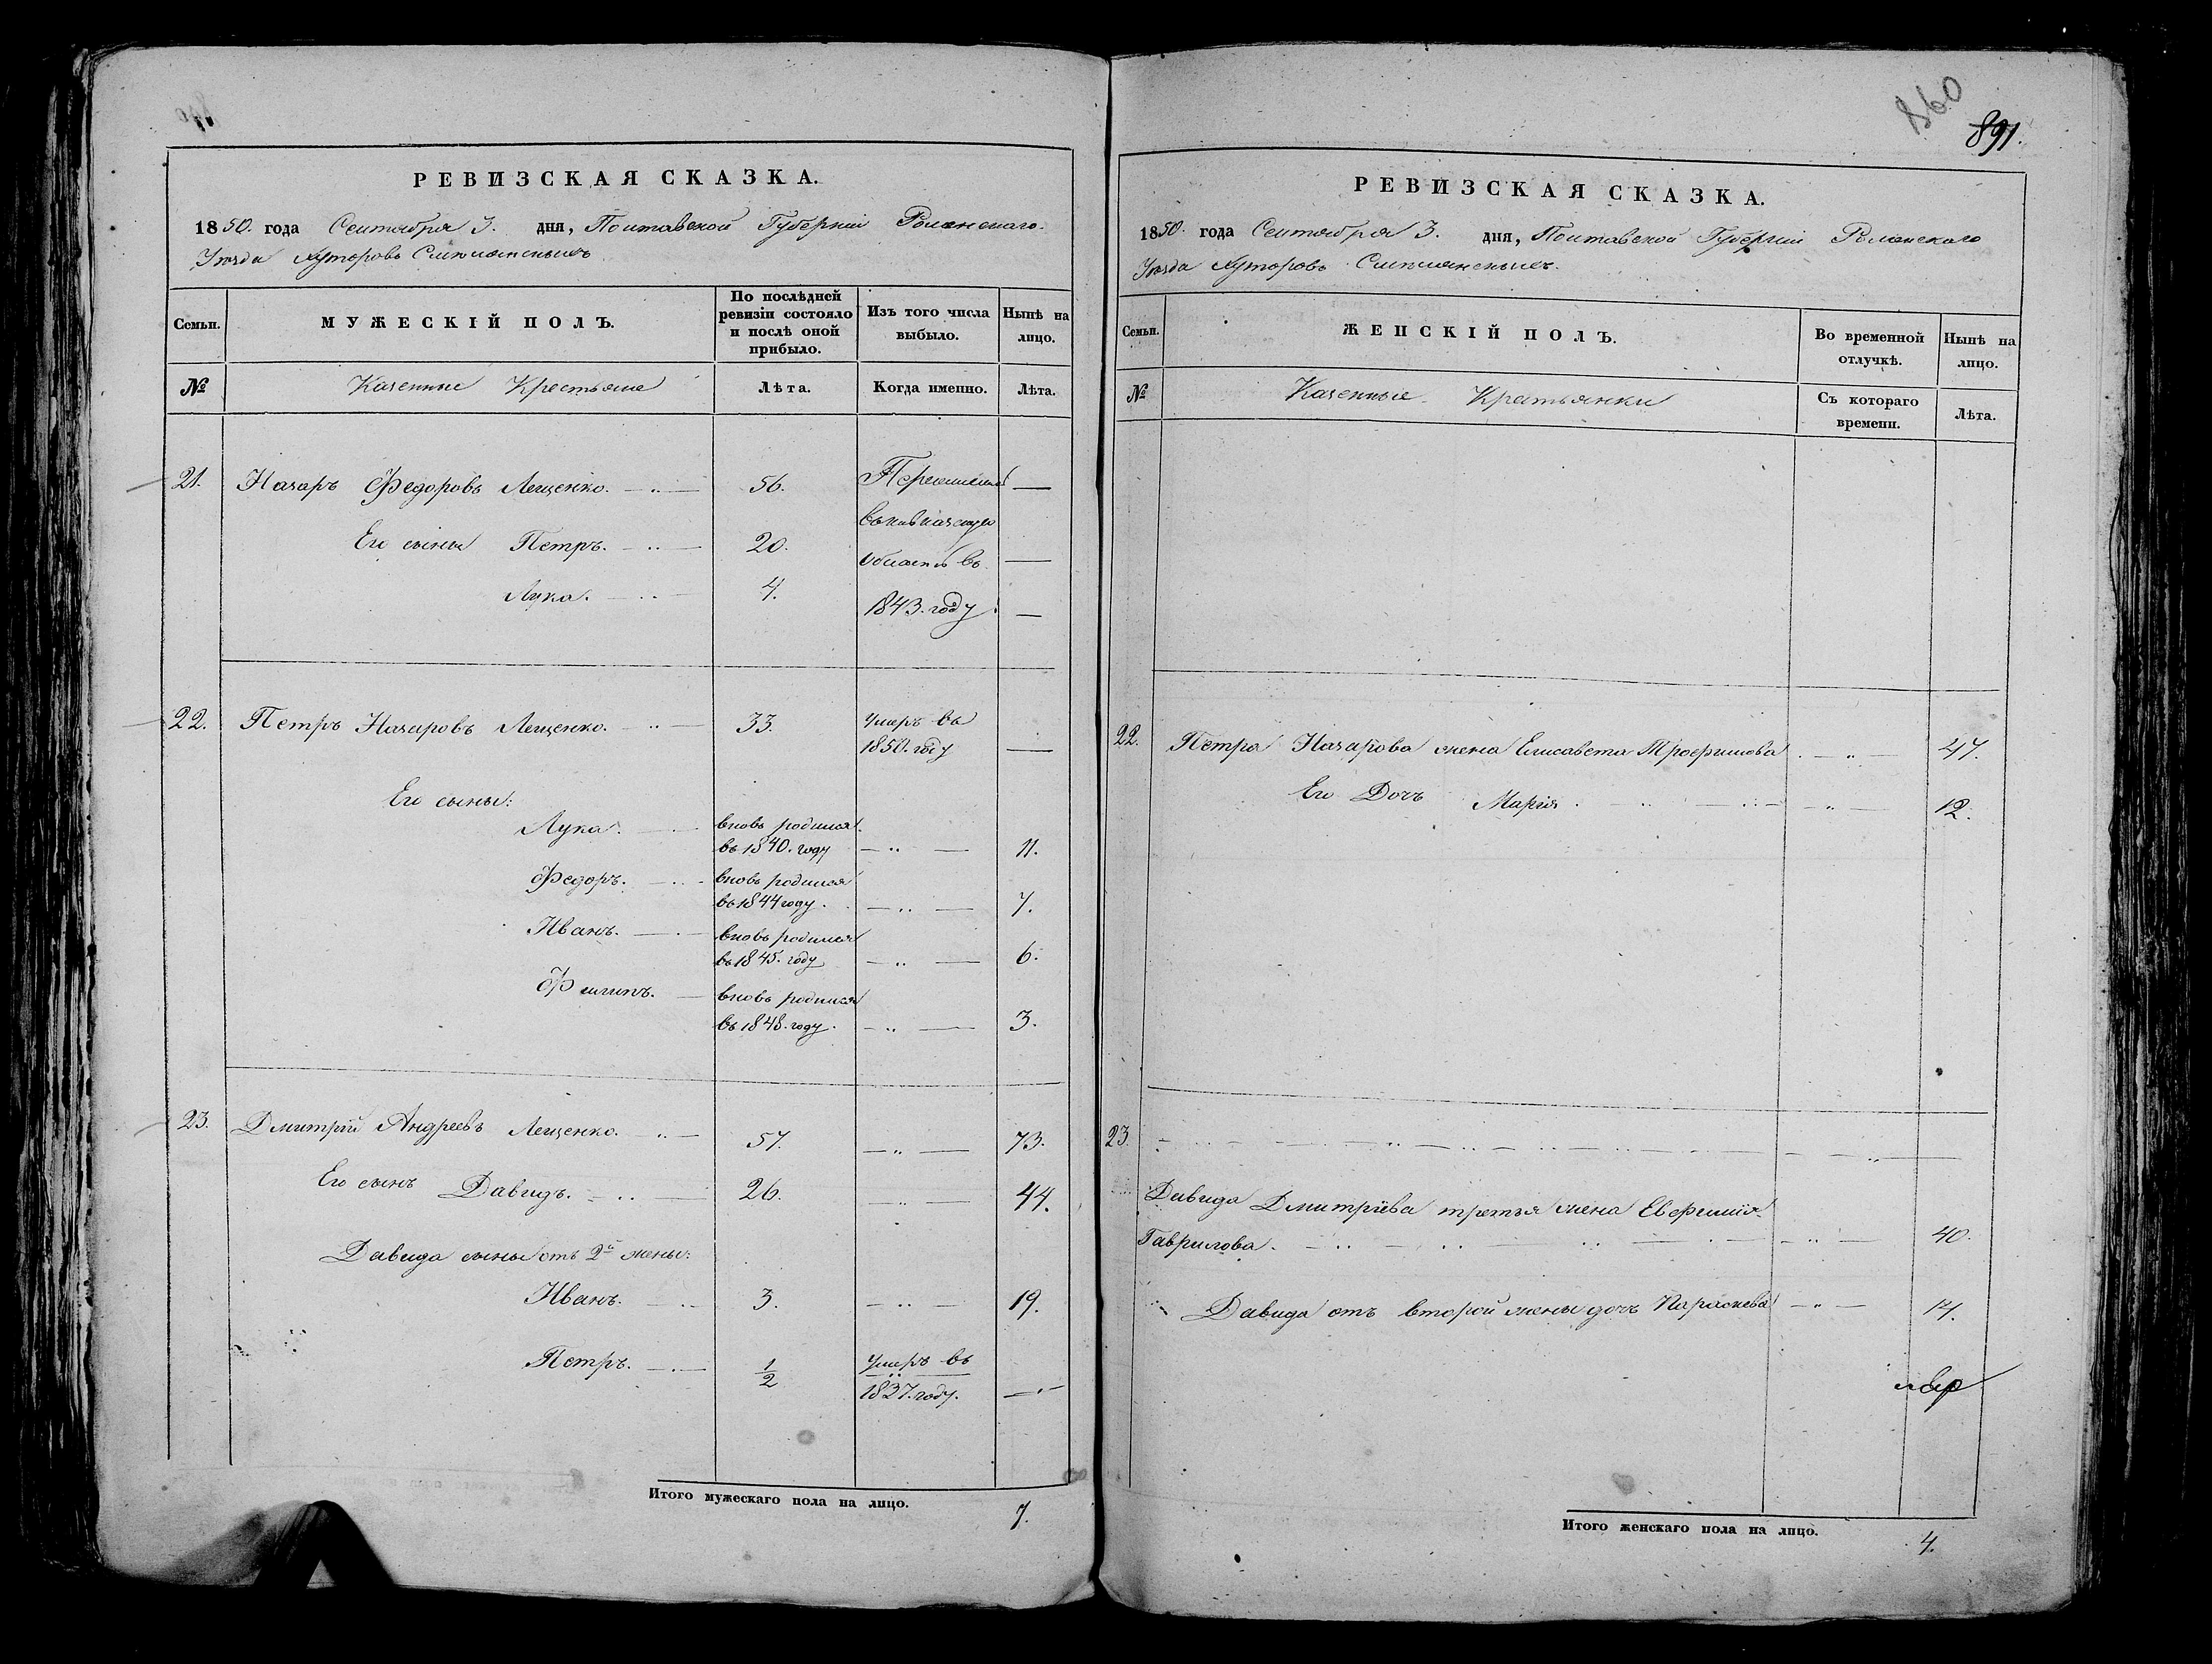 РЕВИЗСКАЯ СКАЗКА.
1850. года Сентября 3. дня, Полтавской Губерніи Роменскаго
Уѣзда Хуторовъ
Семьи.
МУЖЕСКІЙ ПОЛЪ.
По послѣдней ревизіи состояло и послѣ оной прибыло.
Изъ того числа выбыло.
Нынѣ на лицо.
№
Казенные Крестьяне
Лѣта.
Когда именно.
Лѣта.
21. Назаръ Федоровъ Лещенко. 56. —
Его сыны Петръ. 20. —
Лука. 4. —
Переселены
въ Кавказскую
область въ
1843. году.
22. Петръ Назаровъ Лещенко. 33. умеръ въ
1850. году —
Его сыны:
Лука. вновь родился
въ 1840. году — " — 11.
Федоръ. вновь родился
въ 1844 году. — " — 7.
Иванъ. вновь родился
въ 1845. году — " — 6.
Филипъ. вновь родился
въ 1848. году. — " — 3.
23. Дмитрій Андреевъ Лещенко. 57. — " — 73.
Его сынъ Давидъ. 26. — " — 44.
Давида сыны отъ 2й жены:
Иванъ. 3. — " — 19.
Петръ. 1/2 умеръ въ
1837. году. —
Итого мужескаго пола на лицо. 7.
860
891.
РЕВИЗСКАЯ СКАЗКА.
1850. года Сентября 3. дня, Полтавской Губерніи Роменскаго
Уѣзда Хуторовъ
Семьи.
ЖЕНСКІЙ ПОЛЪ.
Во временной отлучкѣ.
Нынѣ на лицо.
№
Казенные Крестьянки
Съ котораго времени.
Лѣта.
22. Петра Назарова жена Елисавета Трофимова — " — 47.
Его Дочь Марія — " — 12.
23. — " —
Давида Дмитріева третья жена Евфимія
Гаврилова. — " — 40.
Давида отъ второй жены дочь Параскева — " — 17.
Итого женскаго пола на лицо. 4.